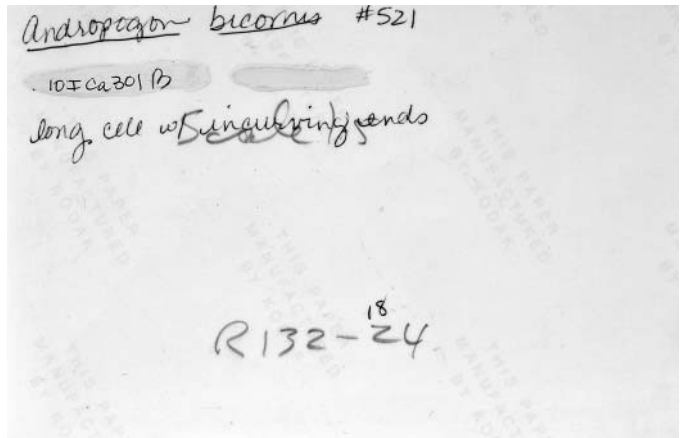 Andropogon bicornis #521
10I Ca301B
long cell w/ incurving ends
18
R132-24
THIS PAPER
MANUFACTURED
BY KODAK